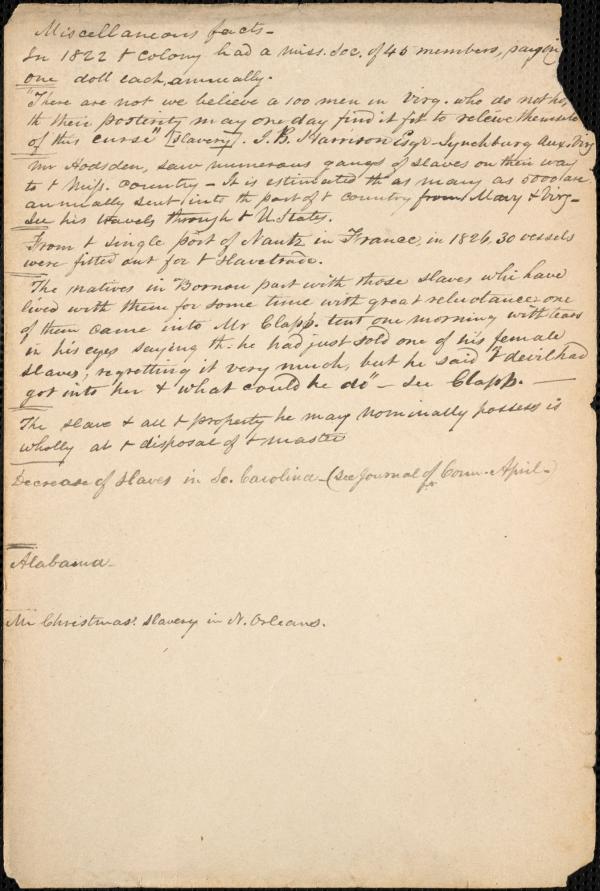 Miscellaneous facts -
In 1822 t colony had a miss. Soc. of 45 members, paying
one doll each, annually.
"There are not we believe a 100 men in Virg. who do not ho
th their posterity may one day find it fit to relieve themselves
of this curse" [Slavery]. J. B. Harrison Esqr Lynchburg Aux. Virg
Mr Hodsden, saw numerous gangs of slaves on their way
to t Miss. country - It is estimated th as many as 5000 are
annually sent into tht part of t country from Mary & Virg -
See his travels through t U. States.
From t single port of Nantz in France, in 1826, 30 vessels
were fitted out for t slave trade.
The natives in Bornou part with those slaves whi have
lived with them for some time with great reluctance: one
of them came into Mr Clapp. tent one morning with tears
in his eyes saying th. he had just sold one of his female
slaves, regretting it very much, but he said "t devil had
got into her & what could he do" - see Clapp. -
The slave & all t property he may nominally possess is
wholly at t disposal of t master
Decrease of slaves in So. Carolina - (See Journal of Com. April -
Alabama -
Mr Christmas' Slavery in N. Orleans.